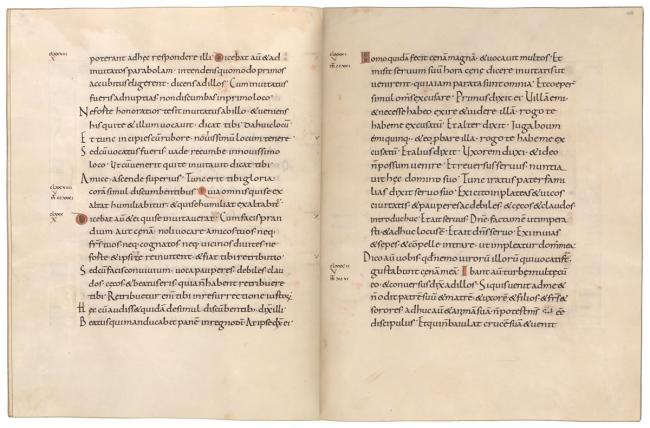 poterant adhęc respondere illi· Dicebat aū & ad
inuitatos parabolam· intendens quomodo primos
accubitus eligerent· dicens ad illos· Cum inuitatus
fueris ad nuptias non discumbas in primo loco·
Ne forte honoratior te sit inuitatus ab illo· & ueniens
his qui te & illum uocauit· dicat tibi· da huic locū·
Et tunc incipies cū rubore· nouissimū locum tenere·
Sed cū uocatus fueris· uade recumbe in nouissimo
loco· Ut cū uenerit qui te inuitauit dicat tibi·
Amice· ascende superius· Tunc erit tibi gloria·
corā simul discumbentibus· Quia omnis qui se ex
altat humiliabitur· & qui se humiliat exaltabit͛·
Dicebat aū & ei qui se inuitauerat· Cum facis pran
dium aut cenā· noli uocare amicos tuos neq·
fr̄s tuos neq· cognatos neq· uicinos diuites· ne
forte & ipsi te reinuitent· & fiat tibi retributio·
Sed cū facis conuiuium· uoca pauperes· debiles· clau
dos· cęcos· & beatus eris· quia n̄ habent retribuere
tibi· Retribuetur enī tibi in resurrectione iustoꝝ·
Hęc cū audiss& quidā de simul discūbentib; dx̄ illi·
Beatus qui manducabit panē in regno dī· At ipse dx̄ ei·
Homo quidā fecit cenā magnā· & uocauit multos· Et
misit seruum suū hora cenę dicere inuitatis ut
uenirent· quia iam parata sunt omnia· Et coeper̄
simul om̄s excusare· Primus dixit ei· Uillā emi·
& necesse habeo exire & uidere illā· rogo te
habe me excusatū· Et alter dixit· Juga boum
emi quinq;· & eo ꝓbare illa· rogo te habe me ex
cusatū· Et alius dixit· Uxorem duxi· & ideo
n̄ possum uenire· Et reuersus seruus· nuntia
uit hęc domino suo· Tunc iratus pater fami
lias dixit seruo suo· Exi cito in plateas & uicos
ciuitatis· & pauperes ac debiles· & cęcos & claudos
introduc huc· Et ait seruus· Dn̄e factum ē ut impera
sti· & adhuc locus ē· Et ait dn̄s seruo· Exi in uias
& sepes· & cōpelle intrare· ut impleatur dom̄ mea·
Dico aū uobis qd̄ nemo uiroꝝ illoꝝ qui uocati st̄
gustabunt cenā meā· Ibant aū turbę multę cū
eo· & conuersus dix̄ ad illos· Si quis uenit ad me &
n̄ odit patrē suū & matrē· & uxorē & filios· & fr̄s &
sorores· adhuc aū & animā suā· n̄ potest m̄s ee
discipulus· Et qui n̄ baiulat crucē suā & uenit